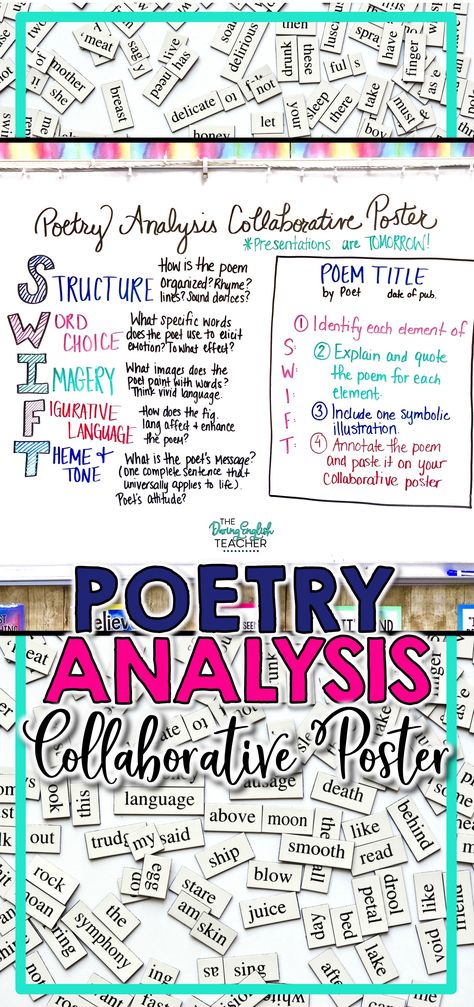 meat
saggy
live
need
has
delirious
then
drunk
these
finger
forever
as
mother
she
it
breast
delicate
to
not
your
sleep
there
take
must
boy
let
honey
ful
s
Poetry Analysis Collaborative Poster
*Presentations are TOMORROW!
STRUCTURE
How is the poem
organized? Rhyme?
lines? Sound devices?
WORD
CHOICE
What specific words
does the poet use to elicit
emotion? To what effect?
IMAGERY
What images does the
poet paint with words?
Think vivid language.
FIGURATIVE
LANGUAGE
How does the fig.
lang affect & enhance
the poem?
THEME &
TONE
What is the poet's Message?
(one complete sentence that
universally applies to life).
Poet's attitude?
POEM TITLE
by Poet date of pub.
① Identify each element of
S
W
I
F
T:
② Explain and quote
the poem for each
element.
③ Include one symbolic
illustration.
④ Annotate the poem
and paste it on your
collaborative poster
THE
Daring English
TEACHER
POETRY
ANALYSIS
Collaborative Poster
meat
finger
forever
take
language
above
moon
death
behind
this
out
trudge
my
said
ship
smooth
like
read
the
all
rock
moan
ring
the
symphony
egg
do
stare
am
skin
blow
juice
day
bed
petal
drool
like
void
lake
after
as
sing